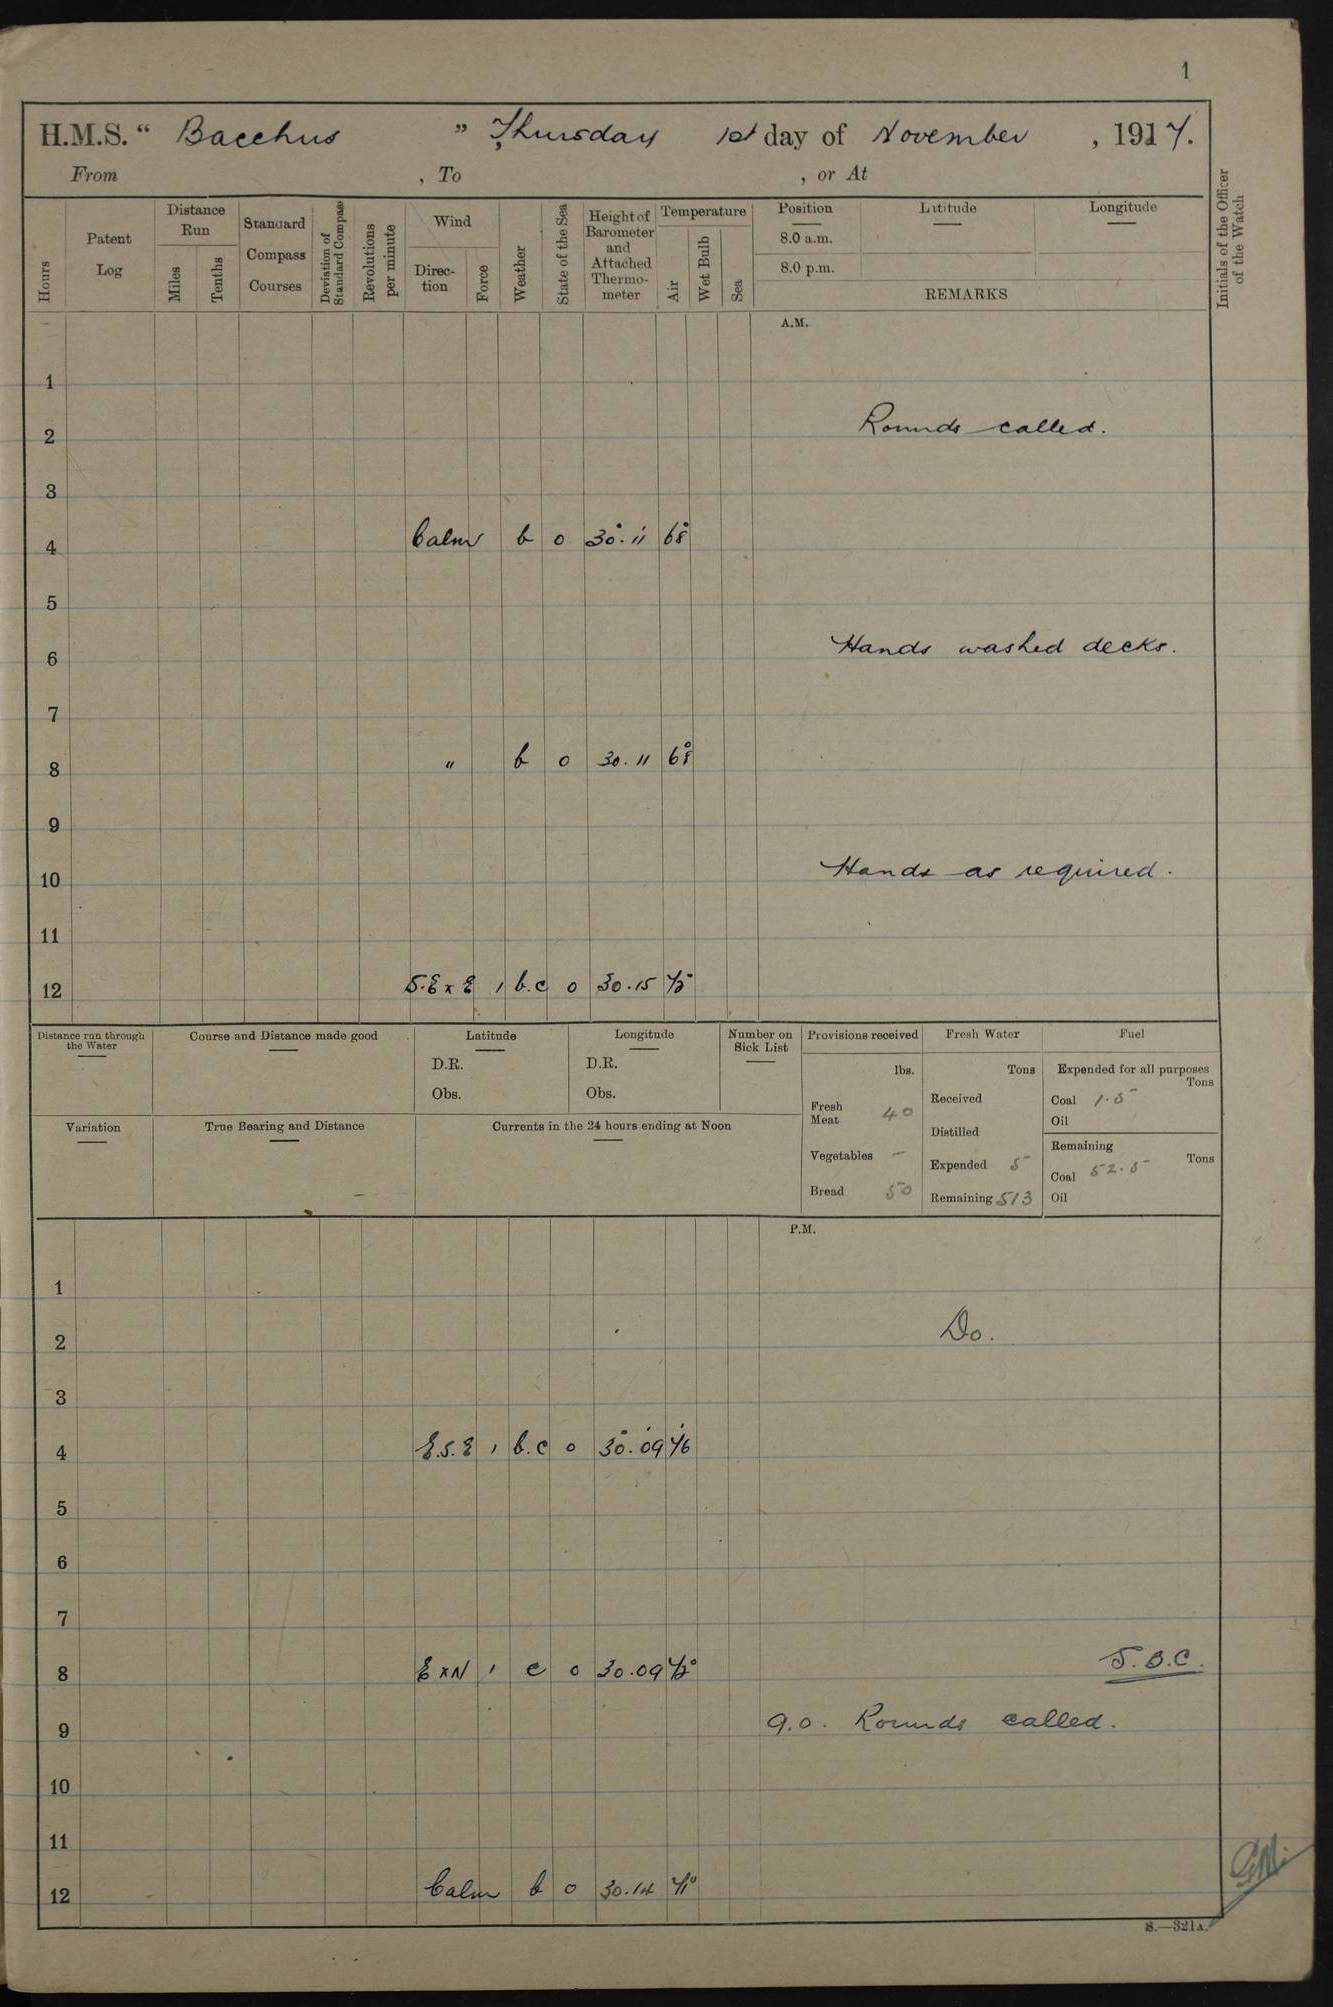 1
H.M.S. “ Bacchus ” Thursday, 1st day of November, 1917.
From , To , or At
Hours
Patent Log
Distance Run
Miles
Tenths
Standard Compass Courses
Deviation of Standard Compass
Revolutions per minute
Wind
Direction
Force
Weather
State of the Sea
Height of Barometer and Attached Thermometer
Temperature
Air
Wet Bulb
Sea
Position
8.0 a.m.
8.0 p.m.
Latitude
Longitude
REMARKS
Initials of the Officer of the Watch
A.M.
1
2 Rounds called.
3
4 Calm b o 30.11 68
5
6 Hands washed decks.
7
8 " b o 30.11 68
9
10 Hands as required.
11
12 S.E x E 1 b.c o 30.15 75
Distance run through the Water
Course and Distance made good
Latitude
D.R.
Obs.
Longitude
D.R.
Obs.
Number on Sick List
Provisions received
lbs.
Fresh Meat 40
Vegetables –
Bread 50
Fresh Water
Tons
Received
Distilled
Expended 5
Remaining 513
Fuel
Expended for all purposes
Tons
Coal 1.5
Oil
Remaining
Tons
Coal 52.5
Oil
Variation
True Bearing and Distance
Currents in the 24 hours ending at Noon
P.M.
1
2 Do.
3
4 E.S.E 1 b.c o 30.09 76
5
6
7
8 E x N 1 c o 30.09 72 S.B.C.
9 9.0. Rounds called.
10
11
12 Calm b o 30.14 71
S.—321A.